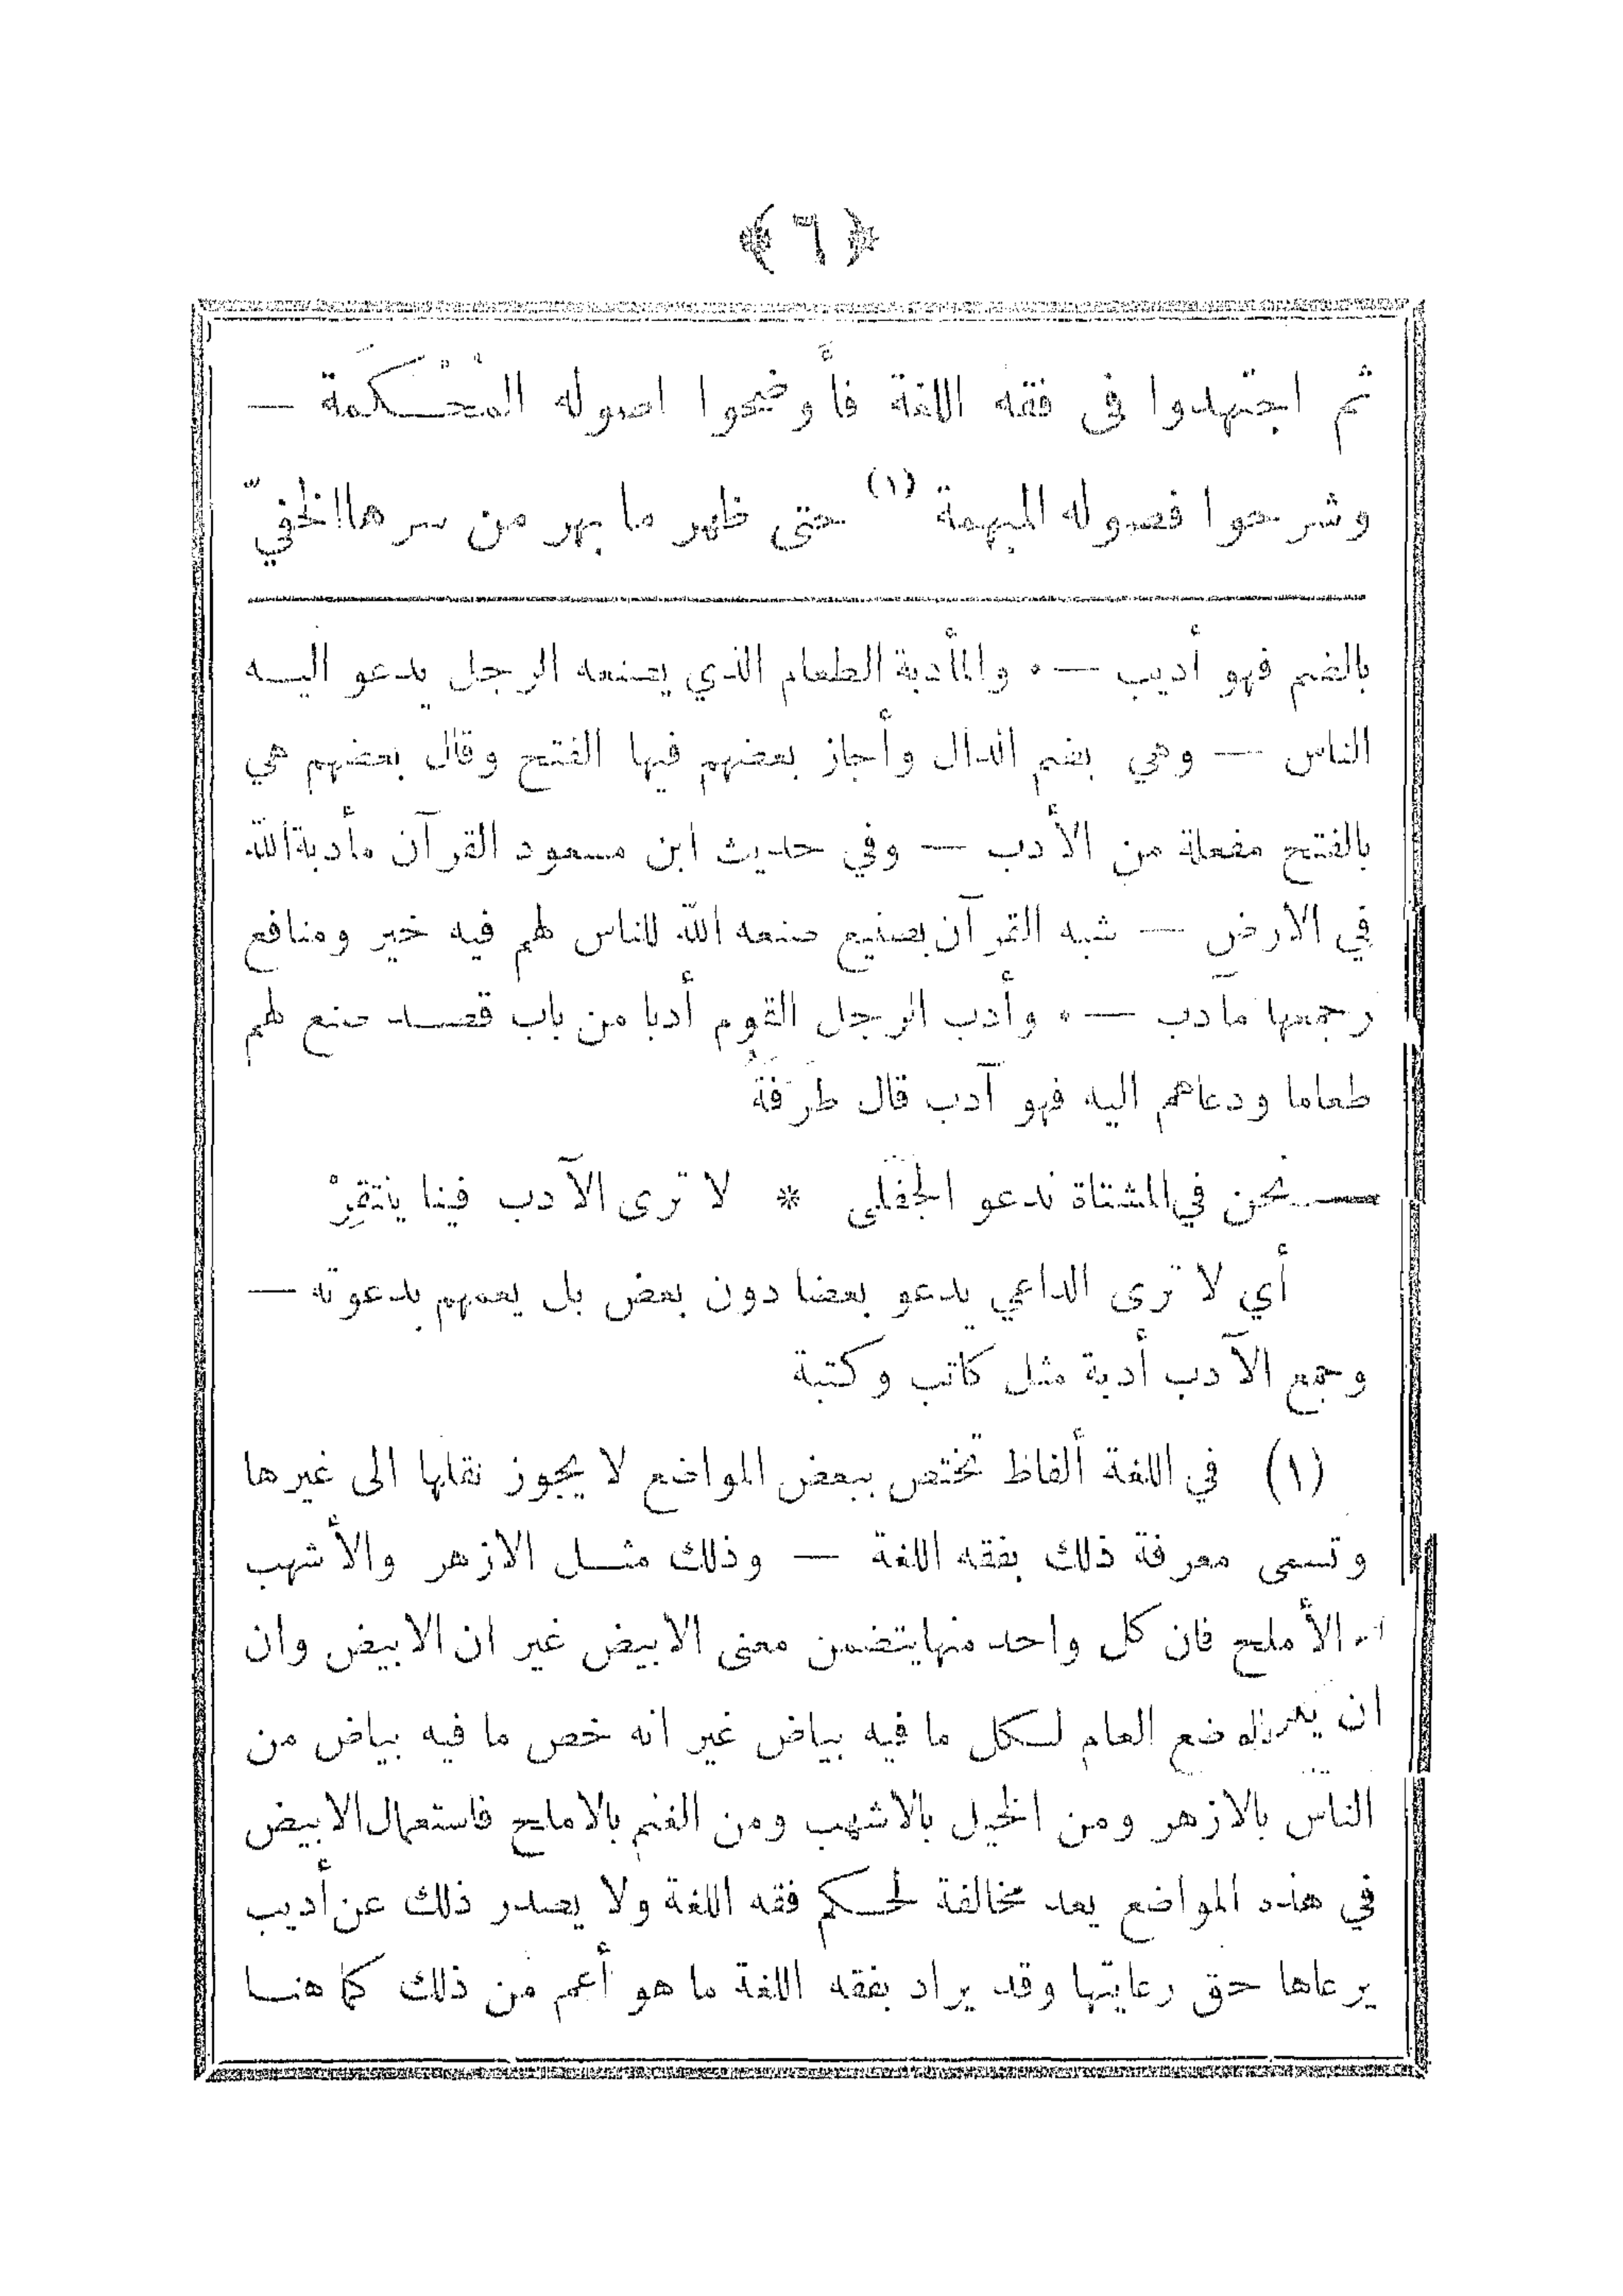 ﴿ ٦ ﴾
ثم اجتهدوا فى فقه اللغة فأَوضحوا اصوله المُحْكَمة —
وشرحوا فصوله المبهمة (١) حتى ظهر ما بهر من سرهاالخفيّ
بالضم فهو أديب — ٠ والمأدبة الطعام الذي يصنعه الرجل يدعو اليه
الناس — وهي بضم الدال وأجاز بعضهم فيها الفتح وقال بعضهم هي
بالفتح مفعلة من الأدب — وفي حديث ابن مسعود القرآن مأدبةالله
في الارض — شبه القرآن بصنيع صنعه الله للناس لهم فيه خير ومنافع
وجمعها مآدب — ٠ وأدب الرجل القوم أدبا من باب قصد صنع لهم
طعاما ودعاهم اليه فهو آدب قال طَرَفَةُ
نحن في المشتاة ندعو الجَفَلى * لا ترى الآدب فينا ينتقِرْ
أي لا ترى الداعي يدعو بعضا دون بعض بل يعمهم بدعوته —
وجمع الآدب أدبة مثل كاتب وكتبة
(١) في اللغة ألفاظ تختص ببعض المواضع لا يجوز نقلها الى غيرها
وتسمى معرفة ذلك بفقه اللغة — وذلك مثل الازهر والأشهب
الأملح فان كل واحد منهايتضمن معنى الابيض غير ان الابيض وان
ضع العام لكل ما فيه بياض غير انه خص ما فيه بياض من
الناس بالازهر ومن الخيل بالاشهب ومن الغنم بالاملح فاستعمال الابيض
في هذه المواضع يعد مخالفة لحكم فقه اللغة ولا يصدر ذلك عن أديب
يرعاها حق رعايتها وقد يراد بفقه اللغة ما هو أعم من ذلك كما هنا